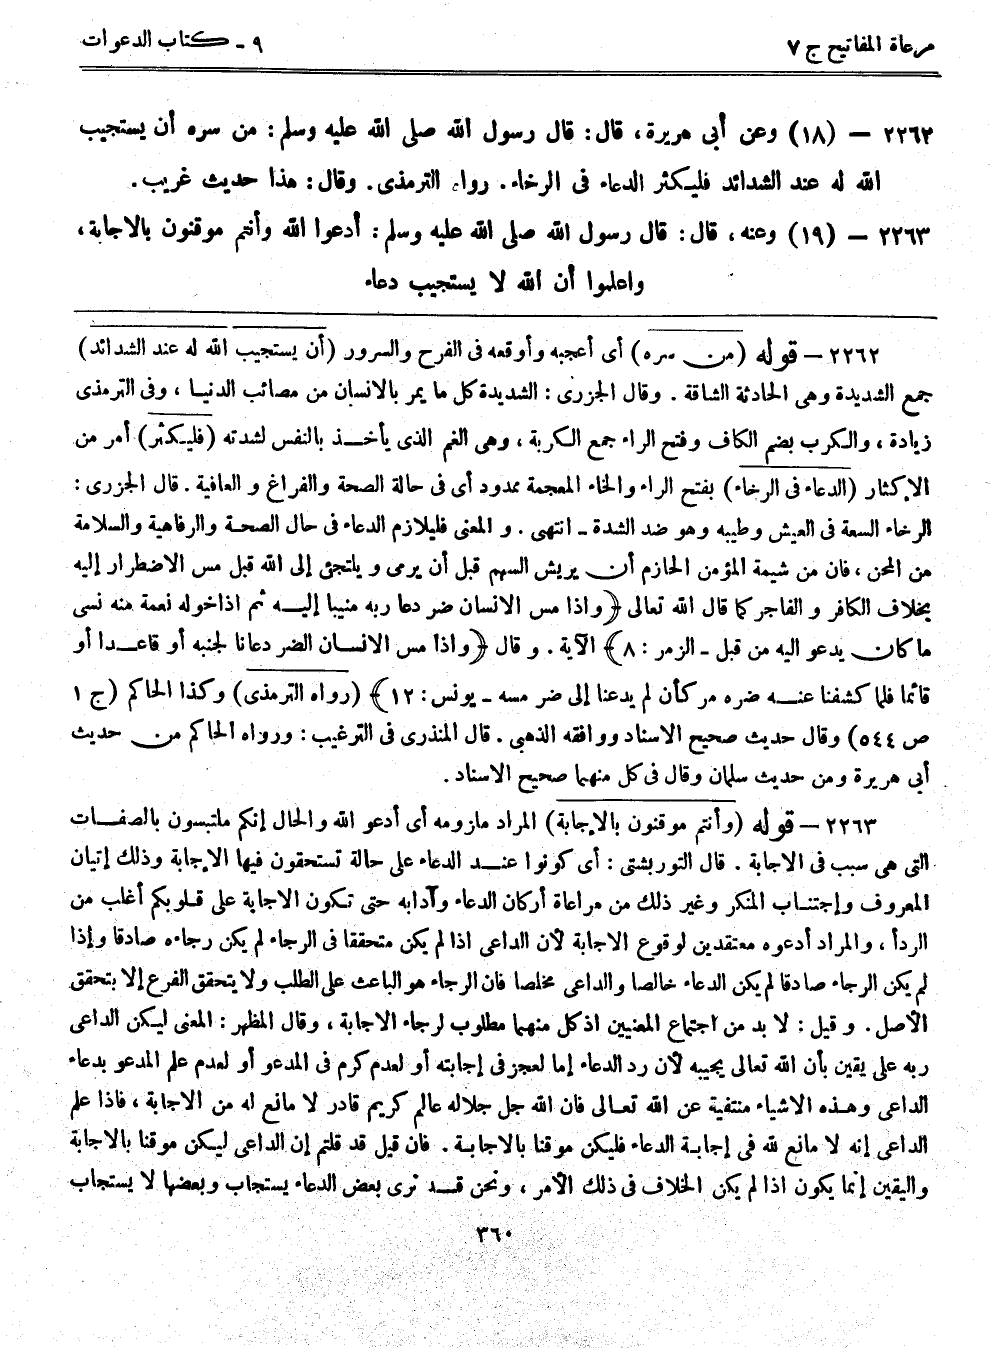 مرعاة المفاتيح ج ٧
٩ - كتاب الدعوات
٢٢٦٢ – (١٨) وعن أبى هريرة، قال: قال رسول الله صلى الله عليه وسلم: من سره أن يستجيب
الله له عند الشدائد فليكثر الدعاء فى الرخاء. رواه الترمذى. وقال: هذا حديث غريب.
٢٢٦٣ – (١٩) وعنه، قال: قال رسول الله صلى الله عليه وسلم: أدعوا الله وأنتم موقنون بالاجابة،
واعلموا أن الله لا يستجيب دعاء
٢٢٦٢ – قوله (من سره) أى أعجبه وأوقعه فى الفرح والسرور (أن يستجيب الله له عند الشدائد)
جمع الشديدة وهى الحادثة الشاقة . وقال الجزرى : الشديدة كل ما يمر بالانسان من مصائب الدنيا ، وفى الترمذى
زيادة ، والكرب بضم الكاف وفتح الراء جمع الكربة ، وهى الغم الذى يأخذ بالنفس لشدته (فليكثر) أمر من
الإكثار (الدعاء فى الرخاء) بفتح الراء والخاء المعجمة ممدود أى فى حالة الصحة والفراغ و العافية . قال الجزرى :
الرخاء السعة فى العيش وطيبه وهو ضد الشدة ـ انتهى . و المعنى فليلازم الدعاء فى حال الصحة والرفاهية والسلامة
من المحن ، فان من شيمة المؤمن الحازم أن يريش السهم قبل أن يرمى و يلتجئ إلى الله قبل مس الاضطرار إليه
بخلاف الكافر و الفاجر كما قال الله تعالى ﴿واذا مس الانسان ضر دعا ربه منيبا إليه ثم اذاخوله نعمة منه نسى
ماكان يدعو اليه من قبل ـ الزمر : ٨﴾ الآية . و قال ﴿واذا مس الانسان الضر دعانا لجنبه أو قاعدا أو
قائما فلما كشفنا عنه ضره مر كأن لم يدعنا إلى ضر مسه ـ يونس : ١٢﴾ (رواه الترمذى) وكذا الحاكم (ج ١
ص ٥٤٤) وقال حديث صحيح الاسناد ووافقه الذهبى . قال المنذرى فى الترغيب : ورواه الحاكم من حديث
أبى هريرة ومن حديث سلمان وقال فى كل منهما صحيح الاسناد .
٢٢٦٣ – قوله (وأنتم موقنون بالإجابة) المراد مازومه أى أدعو الله والحال إنكم ملتبسون بالصفات
التى هى سبب فى الاجابة . قال التوربشتى : أى كونوا عند الدعاء على حالة تستحقون فيها الإجابة وذلك إتيان
المعروف وإجتناب المنكر وغير ذلك من مراعاة أركان الدعاء وآدابه حتى تكون الاجابة على قلوبكم أغلب من
الردأ ، والمراد أدعوه معتقدين لوقوع الاجابة لأن الداعى اذا لم يكن متحققا فى الرجاء لم يكن رجاءه صادقا وإذا
لم يكن الرجاء صادقا لم يكن الدعاء خالصا والداعى مخلصا فان الرجاء هو الباعث على الطلب ولا يتحقق الفرع إلا بتحقق
الأصل . و قيل : لا بد من اجتماع المعنيين اذ كل منهما مطلوب لرجاء الاجابة ، وقال المظهر : المعنى ليكن الداعى
ربه على يقين بأن الله تعالى يجيبه لأن رد الدعاء إما لعجز فى إجابته أو لعدم كرم فى المدعو أو لعدم علم المدعو بدعاء
الداعى وهذه الاشياء منتفية عن الله تعالى فان الله جل جلاله عالم كريم قادر لا مانع له من الاجابة ، فاذا علم
الداعى إنه لا مانع لله فى إجابة الدعاء فليكن موقنا بالاجابة . فان قيل قد قلتم إن الداعى ليكن موقنا بالاجابة
واليقين إنما يكون اذا لم يكن الخلاف فى ذلك الأمر ، ونحن قد نرى بعض الدعاء يستجاب وبعضها لا يستجاب
٣٦٠